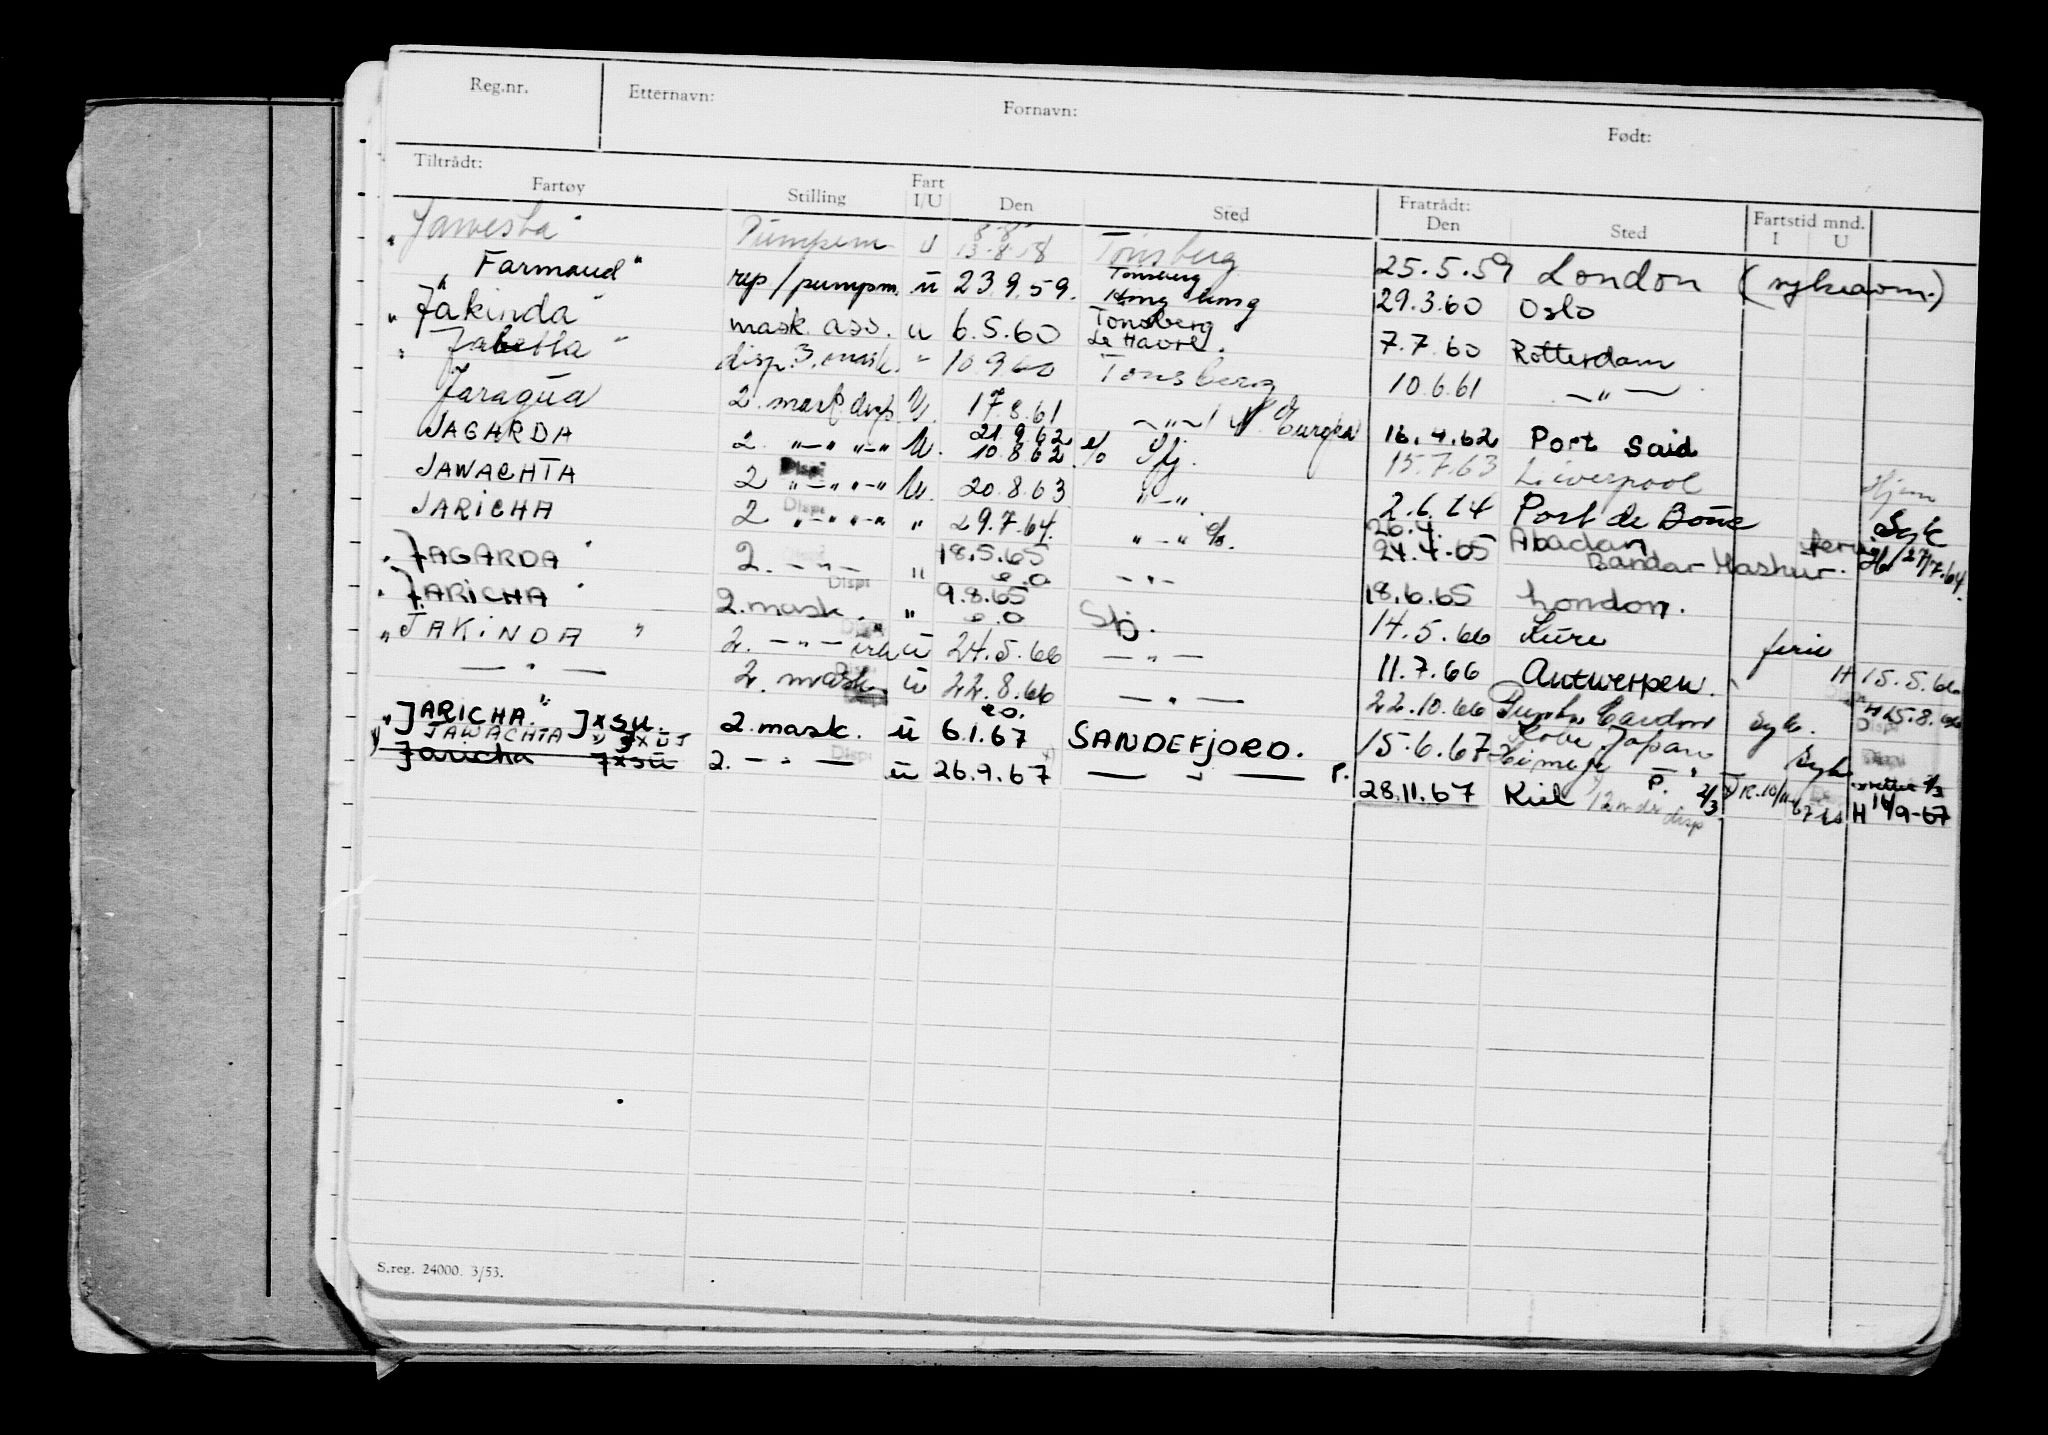 Reg.nr. Etternavn: Fornavn: Født:
Tiltrådt: Fratrådt: Fartstid mnd.
Fartøy Stilling Fart I/U Den Sted Den Sted I U
" Jawesta " Pumpem. U 13.8.58 Tønsberg 25.5.59 London (sykeavm.)
" Farmand " rep/pumpm. ü 23.9.59. Tønsberg Hong Kong 29.3.60 Oslo
" Jakinda " mask. ass. u 6.5.60 Tønsberg Le Havre. 7.7.60 Rotterdam
" Jabetta " disp. 3. mask. " 10.9.60 Tønsberg 10.6.61 — " —
Jaragua 2. mask. disp. U. 17.8.61 — " — Europa 16.4.62 Port Said
JAGARDA 2. — " — " — " U. 21.9.62 10.8.62 e/o Sfj. 15.7.63 Liverpool Hjem
JAWACHTA 2 " — " — " U. 20.8.63 " — " 2.6.64 Port de Bouc Syk
JARICHA 2 " — " — " " 29.7.64. " — " e/o. 26.4. 24.4.65 Abadan Bandar Mashur. ferie H 27/7.64.
" JAGARDA " 2. — " — " 18.5.65 e.o — " — 18.6.65 London.
" JARICHA " 2. mask. " 9.8.65 e.o Sfj. 14.5.66 Kure ferie
" JAKINDA " 2. — " — ü 24.5.66 — " — 11.7.66 Antwerpen. H 15.5.66
— " — 2. mask. ü 22.8.66 e.o. — " — 22.10.66 Punta Cardon Syk. H 25.8.66
" JARICHA." JXSU. 2. mask. ü 6.1.67 SANDEFJORD. 15.6.67 Kobe, Japan Himeji Syk
" JAWACHTA " JXUJ
Jaricha JXSU 2. — " — ü 26.9.67 — " — P. 28.11.67 Kiel 12 mdr disp P. 2/3 H 14/9-67
Disp
S.reg. 24000. 3/53.